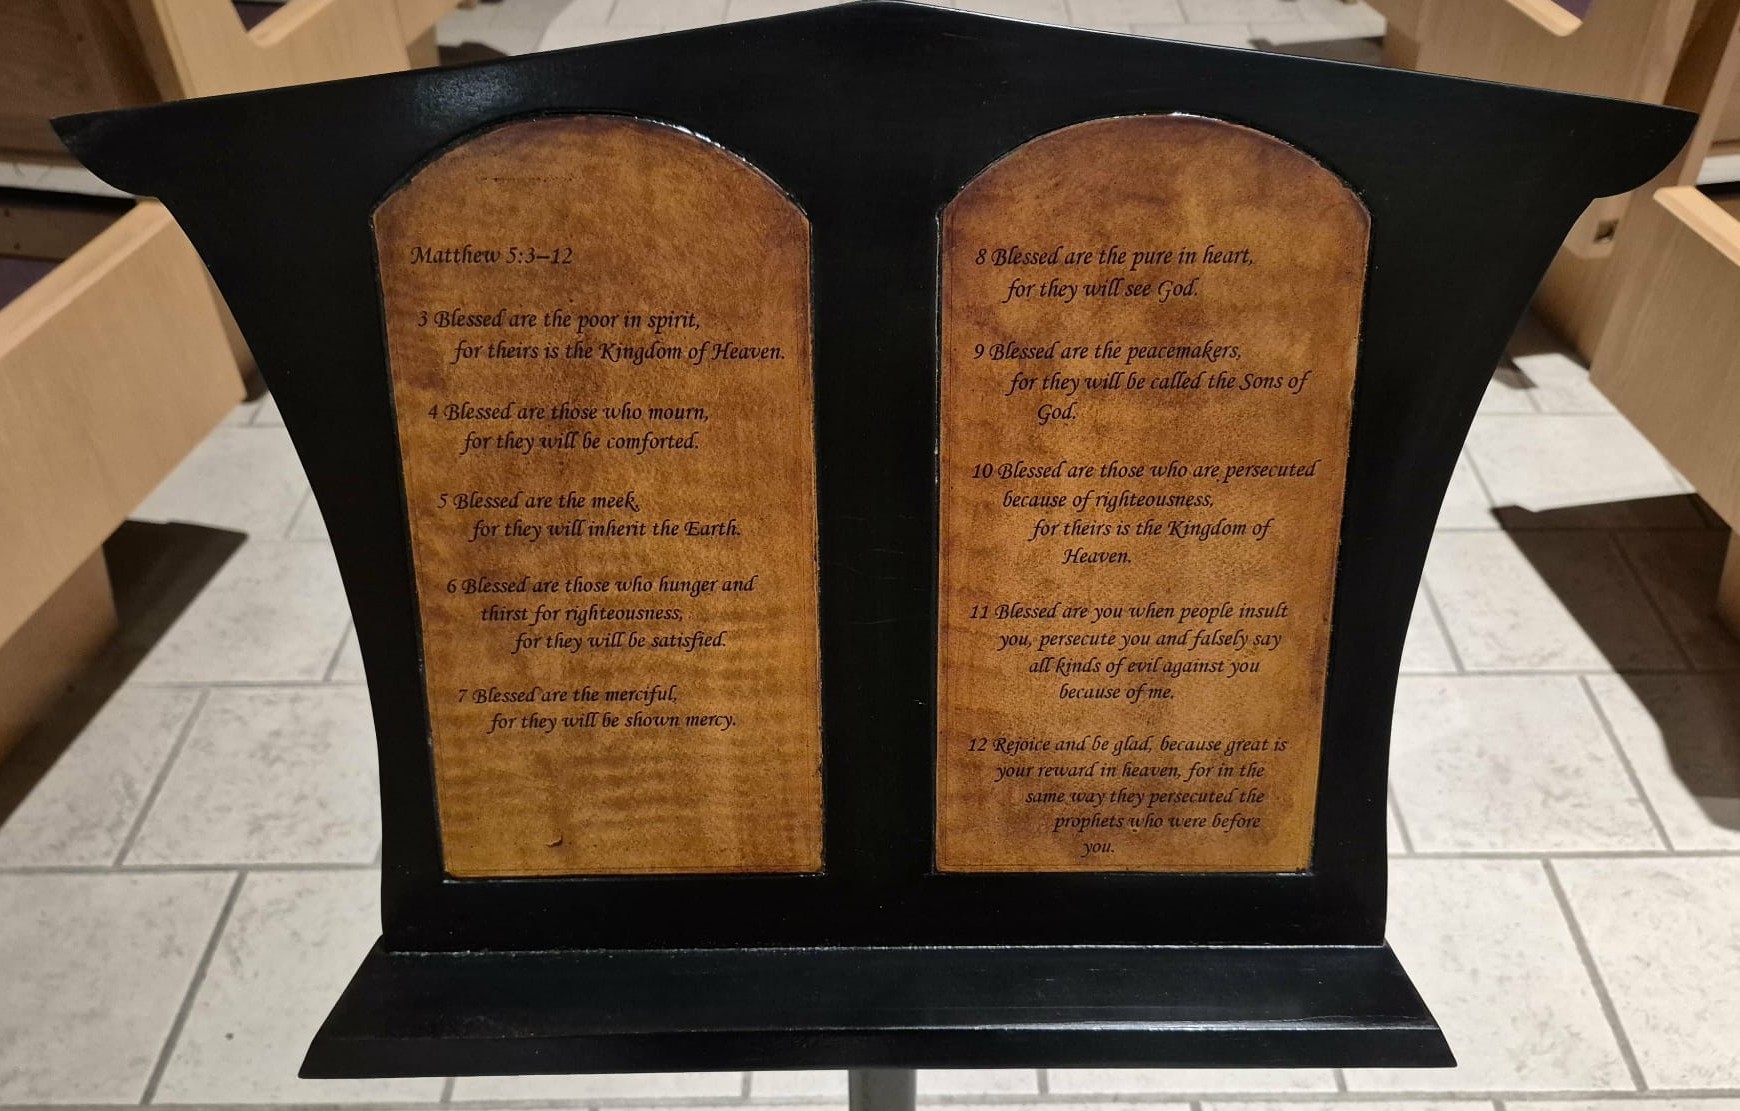 Matthew 5:3–12
3 Blessed are the poor in spirit,
for theirs is the Kingdom of Heaven.
4 Blessed are those who mourn,
for they will be comforted.
5 Blessed are the meek,
for they will inherit the Earth.
6 Blessed are those who hunger and
thirst for righteousness,
for they will be satisfied.
7 Blessed are the merciful,
for they will be shown mercy.
8 Blessed are the pure in heart,
for they will see God.
9 Blessed are the peacemakers,
for they will be called the Sons of
God.
10 Blessed are those who are persecuted
because of righteousness,
for theirs is the Kingdom of
Heaven.
11 Blessed are you when people insult
you, persecute you and falsely say
all kinds of evil against you
because of me.
12 Rejoice and be glad, because great is
your reward in heaven, for in the
same way they persecuted the
prophets who were before
you.